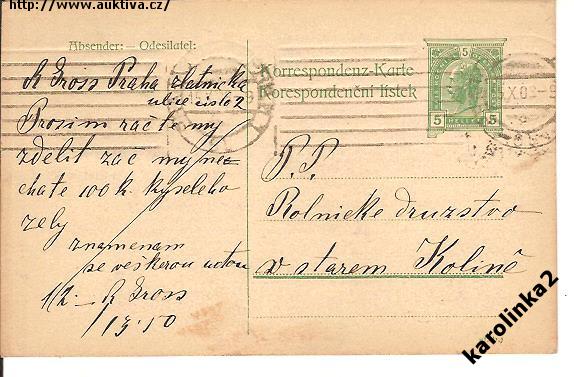 http://www.auktiva.cz/
Absender: — Odesilatel:
R Gross Praha zlatnicka
ulice cislo 2
Prosim račte my
zdelit zac my ne-
chate 100 k. kyseleho
zely
znamenam
se veškerou uctou
1/2 — R Gross
13.10
Korrespondenz-Karte
Korespondenční lístek
5
5 HELLER 5
X 08-9
P. P.
Rolnicke druzstvo
v starem Kolině
karolinka2